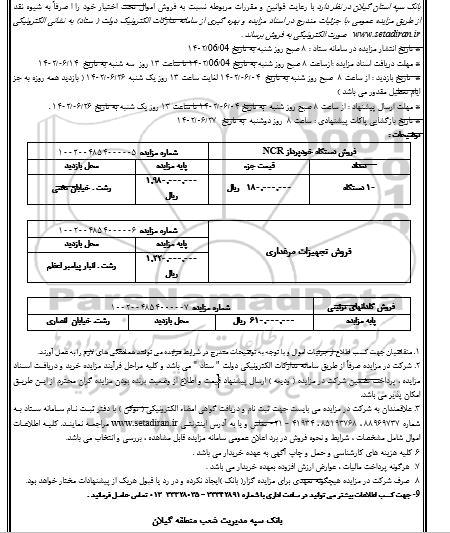 بانک سپه استان گیلان در نظر دارد با رعایت قوانین و مقررات مربوطه نسبت به فروش اموال تحت اختیار خود را صرفاً به شیوه نقد
از طریق مزایده عمومی با جزئیات مندرج در اسناد مزایده و بهره گیری از سامانه تدارکات الکترونیک دولت ( ستاد) به نشانی الکترونیکی
www.setadiran.ir صورت الکترونیکی به فروش برساند .
تاریخ انتشار مزایده در سامانه ستاد : ۸ صبح روز شنبه به تاریخ 1402/06/04
مهلت دریافت اسناد مزایده :ازساعت ۸ صبح روز شنبه به تاریخ 1402/06/04 تا ساعت ۱۳ روز سه شنبه به تاریخ ۱۴۰۲/۰۶/۱۴
تاریخ بازدید : از ساعت ۸ صبح روز شنبه به تاریخ ۱۴۰۲/۰۶/۰۴ لغایت ساعت ۱۳ روز یک شنبه ۱۴۰۲/۰۶/۲۶ ( بازدید همه روزه به جز
ایام تعطیل مقدور می باشد )
مهلت ارسال پیشنهاد : از ساعت ۸ صبح روز شنبه به تاریخ ۱۴۰۲/۰۶/۰۴ تا ساعت ۱۳ روز یک شنبه به تاریخ ۱۴۰۲/۰۶/۲۶ .
تاریخ بازگشایی پاکات پیشنهادی : ساعت ۸ روز دوشنبه به تاریخ ۱۴۰۲/۰۶/۲۷
توضیحات :
فروش دستگاه خودپرداز NCR شماره مزایده ۱۰۰۲۰۰۴۸۵۴۰۰۰۰۰۵
تعداد قیمت جزء پایه مزایده محل بازدید
۱۰ دستگاه ۱۸۰.۰۰۰.۰۰۰ ریال ۱.۹۸۰.۰۰۰.۰۰۰ ریال رشت . خیابان
فروش تجهیزات مرغداری شماره مزایده ۱۰۰۲۰۰۴۸۵۴۰۰۰۰۰۶
پایه مزایده محل بازدید
۱.۲۲۰.۰۰۰.۰۰۰ ریال رشت . انبار پیامبر اعظم
فروش کلدانهای تزئینی شماره مزایده ۱۰۰۲۰۰۴۸۵۴۰۰۰۰۰۷
پایه مزایده ۶۱۰.۰۰۰.۰۰۰ ریال محل بازدید رشت. خیابان انصاری
۱. متقاضیان جهت کسب اطلاع از جزئیات اموال و با توجه به توضیحات مندرج در شرایط مزایده می توانند هماهنگی های لازم را به عمل آورند.
۲. شرکت در مزایده صرفاً از طریق سامانه تدارکات الکترونیکی دولت " ستاد " می باشد و کلیه مراحل فرآیند مزایده خرید و دریافت اسناد
مزایده ، پرداخت تضمین شرکت در مزایده ( ودیعه ) ارسال پیشنهاد قیمت و اطلاع از وضعیت برنده بودن مزایده گران محترم از این طریق
امکان پذیر می باشد.
۳. علاقمندان به شرکت در مزایده می بایست جهت ثبت نام و دریافت گواهی امضاء الکترونیکی ( توکن ) با دفتر ثبت نام سامانه ستاد به
شماره ۸۸۹۶۹۷۳۷ ، ۸۵۱۹۳۷۶۸ ، ۴۱۹۳۴ – ۰۲۱ تماس و یا به آدرس اینترنتی www.setadiran.ir مراجعه نمایند. کلیه اطلاعات
اموال شامل مشخصات ، شرایط و نحوه فروش در برد اعلان عمومی سامانه مزایده قابل مشاهده ، بررسی و انتخاب می باشد.
۶ کلیه هزینه های کارشناسی و حمل و چاپ آگهی به عهده خریدار می باشد .
۷. هرگونه پرداخت مالیات ، عوارض ارزش افزوده بعهده خریدار می باشد .
۸. صرف شرکت در مزایده هیچگونه تعهدی برای مزایده گزار( بانک )ایجاد نکرده و در رد یا قبول هریک از پیشنهادات مختار خواهد بود.
9- جهت کسب اطلاعات بیشتر می توانید در ساعت اداری با شماره ۳۳۳۴۲۸۹۱ – ۳۳۳۲۸۰۳۵ ۰۱۳ تماس حاصل فرمائید .
بانک سپه مدیریت شعب منطقه گیلان